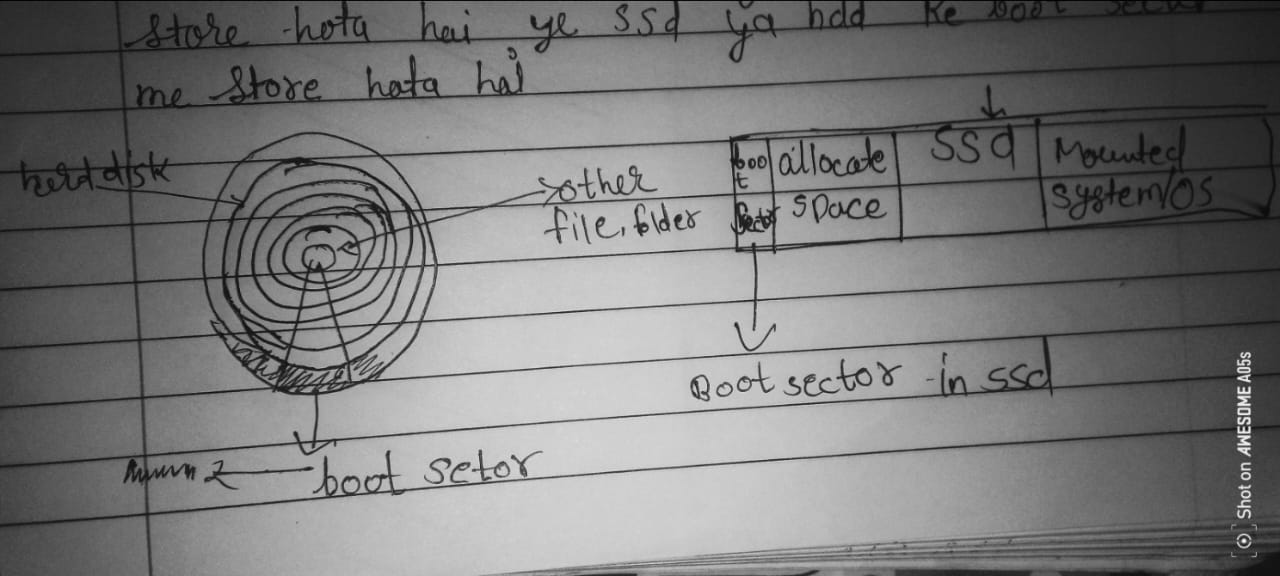 store hota hai ye SSd ya hdd ke boot
me store hota hai
hard disk
other
file, folder
boot
sector
allocate
space
SSd
Mounted
system/OS
Boot sector in ssd
boot setor
Shot on AWESOME A05s